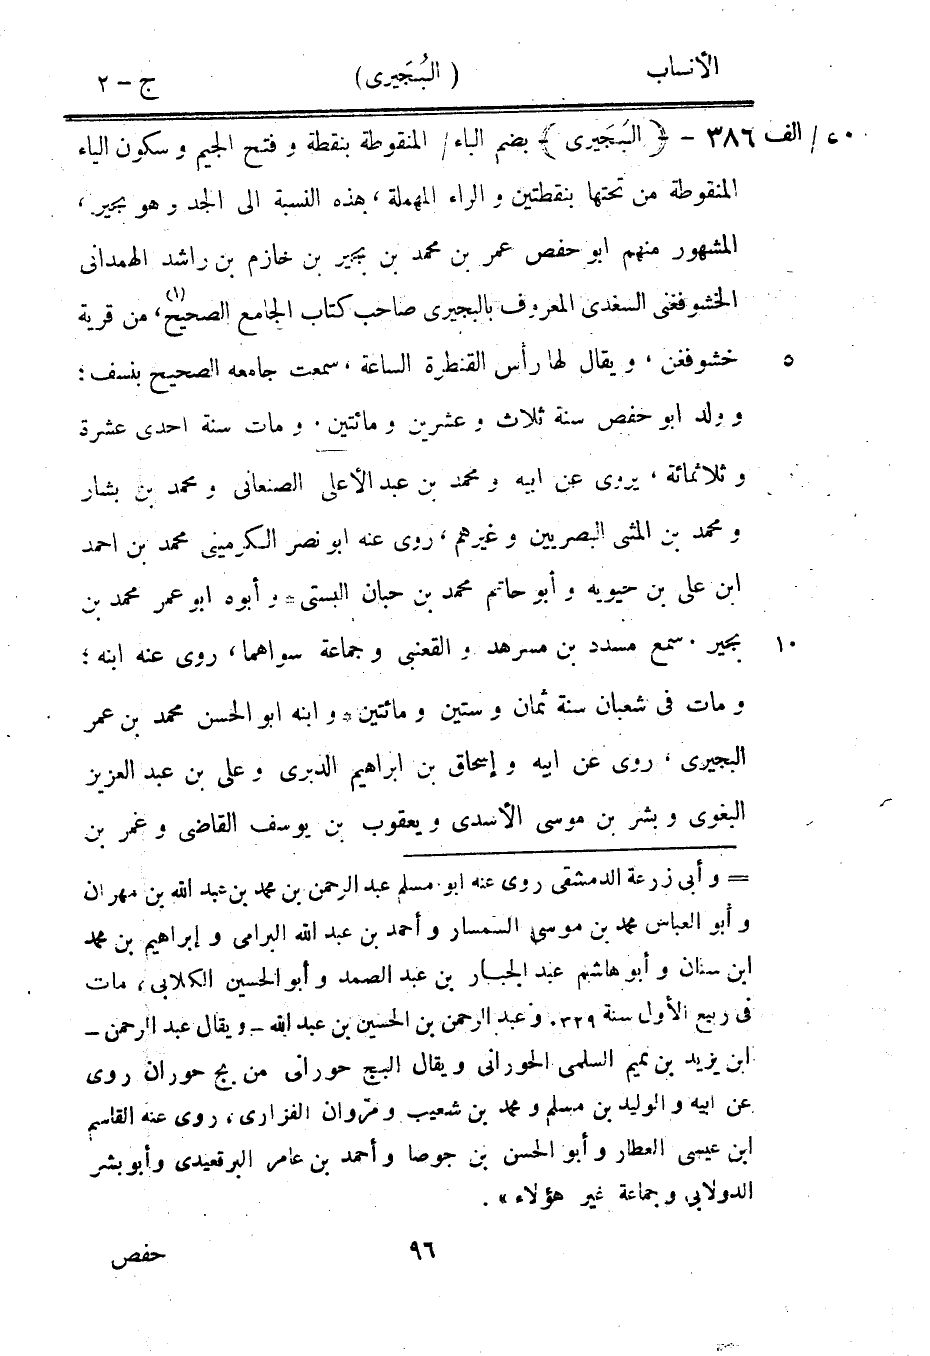 الأنساب ( البُجَيرى ) ج - ٢
٤٠ / الف ٣٨٦ - ﴿ البُجَيرى ﴾ بضم الباء / المنقوطة بنقطة و فتح الجيم و سكون الياء
المنقوطة من تحتها بنقطتين و الراء المهملة ، هذه النسبة الى الجد و هو بجير ،
المشهور منهم ابو حفص عمر بن محمد بن بجير بن خازم بن راشد الهمدانى
الخشوفغنى السغدى المعروف بالبجيرى صاحب كتاب الجامع الصحيح(١)، من قرية
٥ خشوفغن ، و يقال لها رأس القنطرة الساعة ، سمعت جامعه الصحيح بنسف ؛
و ولد ابو حفص سنة ثلاث و عشرين و مائتين . و مات سنة احدى عشرة
و ثلاثمائة ، يروى عن ابيه و محمد بن عبد الأعلى الصنعانى و محمد بن بشار
و محمد بن المثنى البصريين و غيرهم ، روى عنه ابو نصر الكرمينى محمد بن احمد
ابن على بن حيويه و أبو حاتم محمد بن حبان البستى * و أبوه ابو عمر محمد بن
١٠ بجير . سمع مسدد بن مسرهد و القعنبى و جماعة سواهما ، روى عنه ابنه ؛
و مات فى شعبان سنة ثمان و ستين و مائتين * و ابنه ابو الحسن محمد بن عمر
البجيرى ، روى عن ابيه و إسحاق بن ابراهيم الدبرى و على بن عبد العزيز
البغوى و بشر بن موسى الأسدى و يعقوب بن يوسف القاضى و عمر بن
= و أبى زرعة الدمشقى روى عنه ابو مسلم عبد الرحمن بن محمد بن عبد الله بن مهران
و أبو العباس محمد بن موسى السمسار و أحمد بن عبد الله البرامى و إبراهيم بن محمد
ابن سنان و أبو هاشم عبد الجبار بن عبد الصمد و أبو الحسين الكلابى ، مات
فى ربيع الأول سنة ٣٢٩ . و عبد الرحمن بن الحسين بن عبد الله - و يقال عبد الرحمن -
ابن يزيد بن تميم السلمى الحورانى و يقال البج حورانى من بج حوران روى
عن ابيه و الوليد بن مسلم و محمد بن شعيب و مروان الفزارى ، روى عنه القاسم
ابن عيسى العطار و أبو الحسن بن جوصا و أحمد بن عامر البرقعيدى و أبو بشر
الدولابى و جماعة غير هؤلاء » .
٩٦ حفص